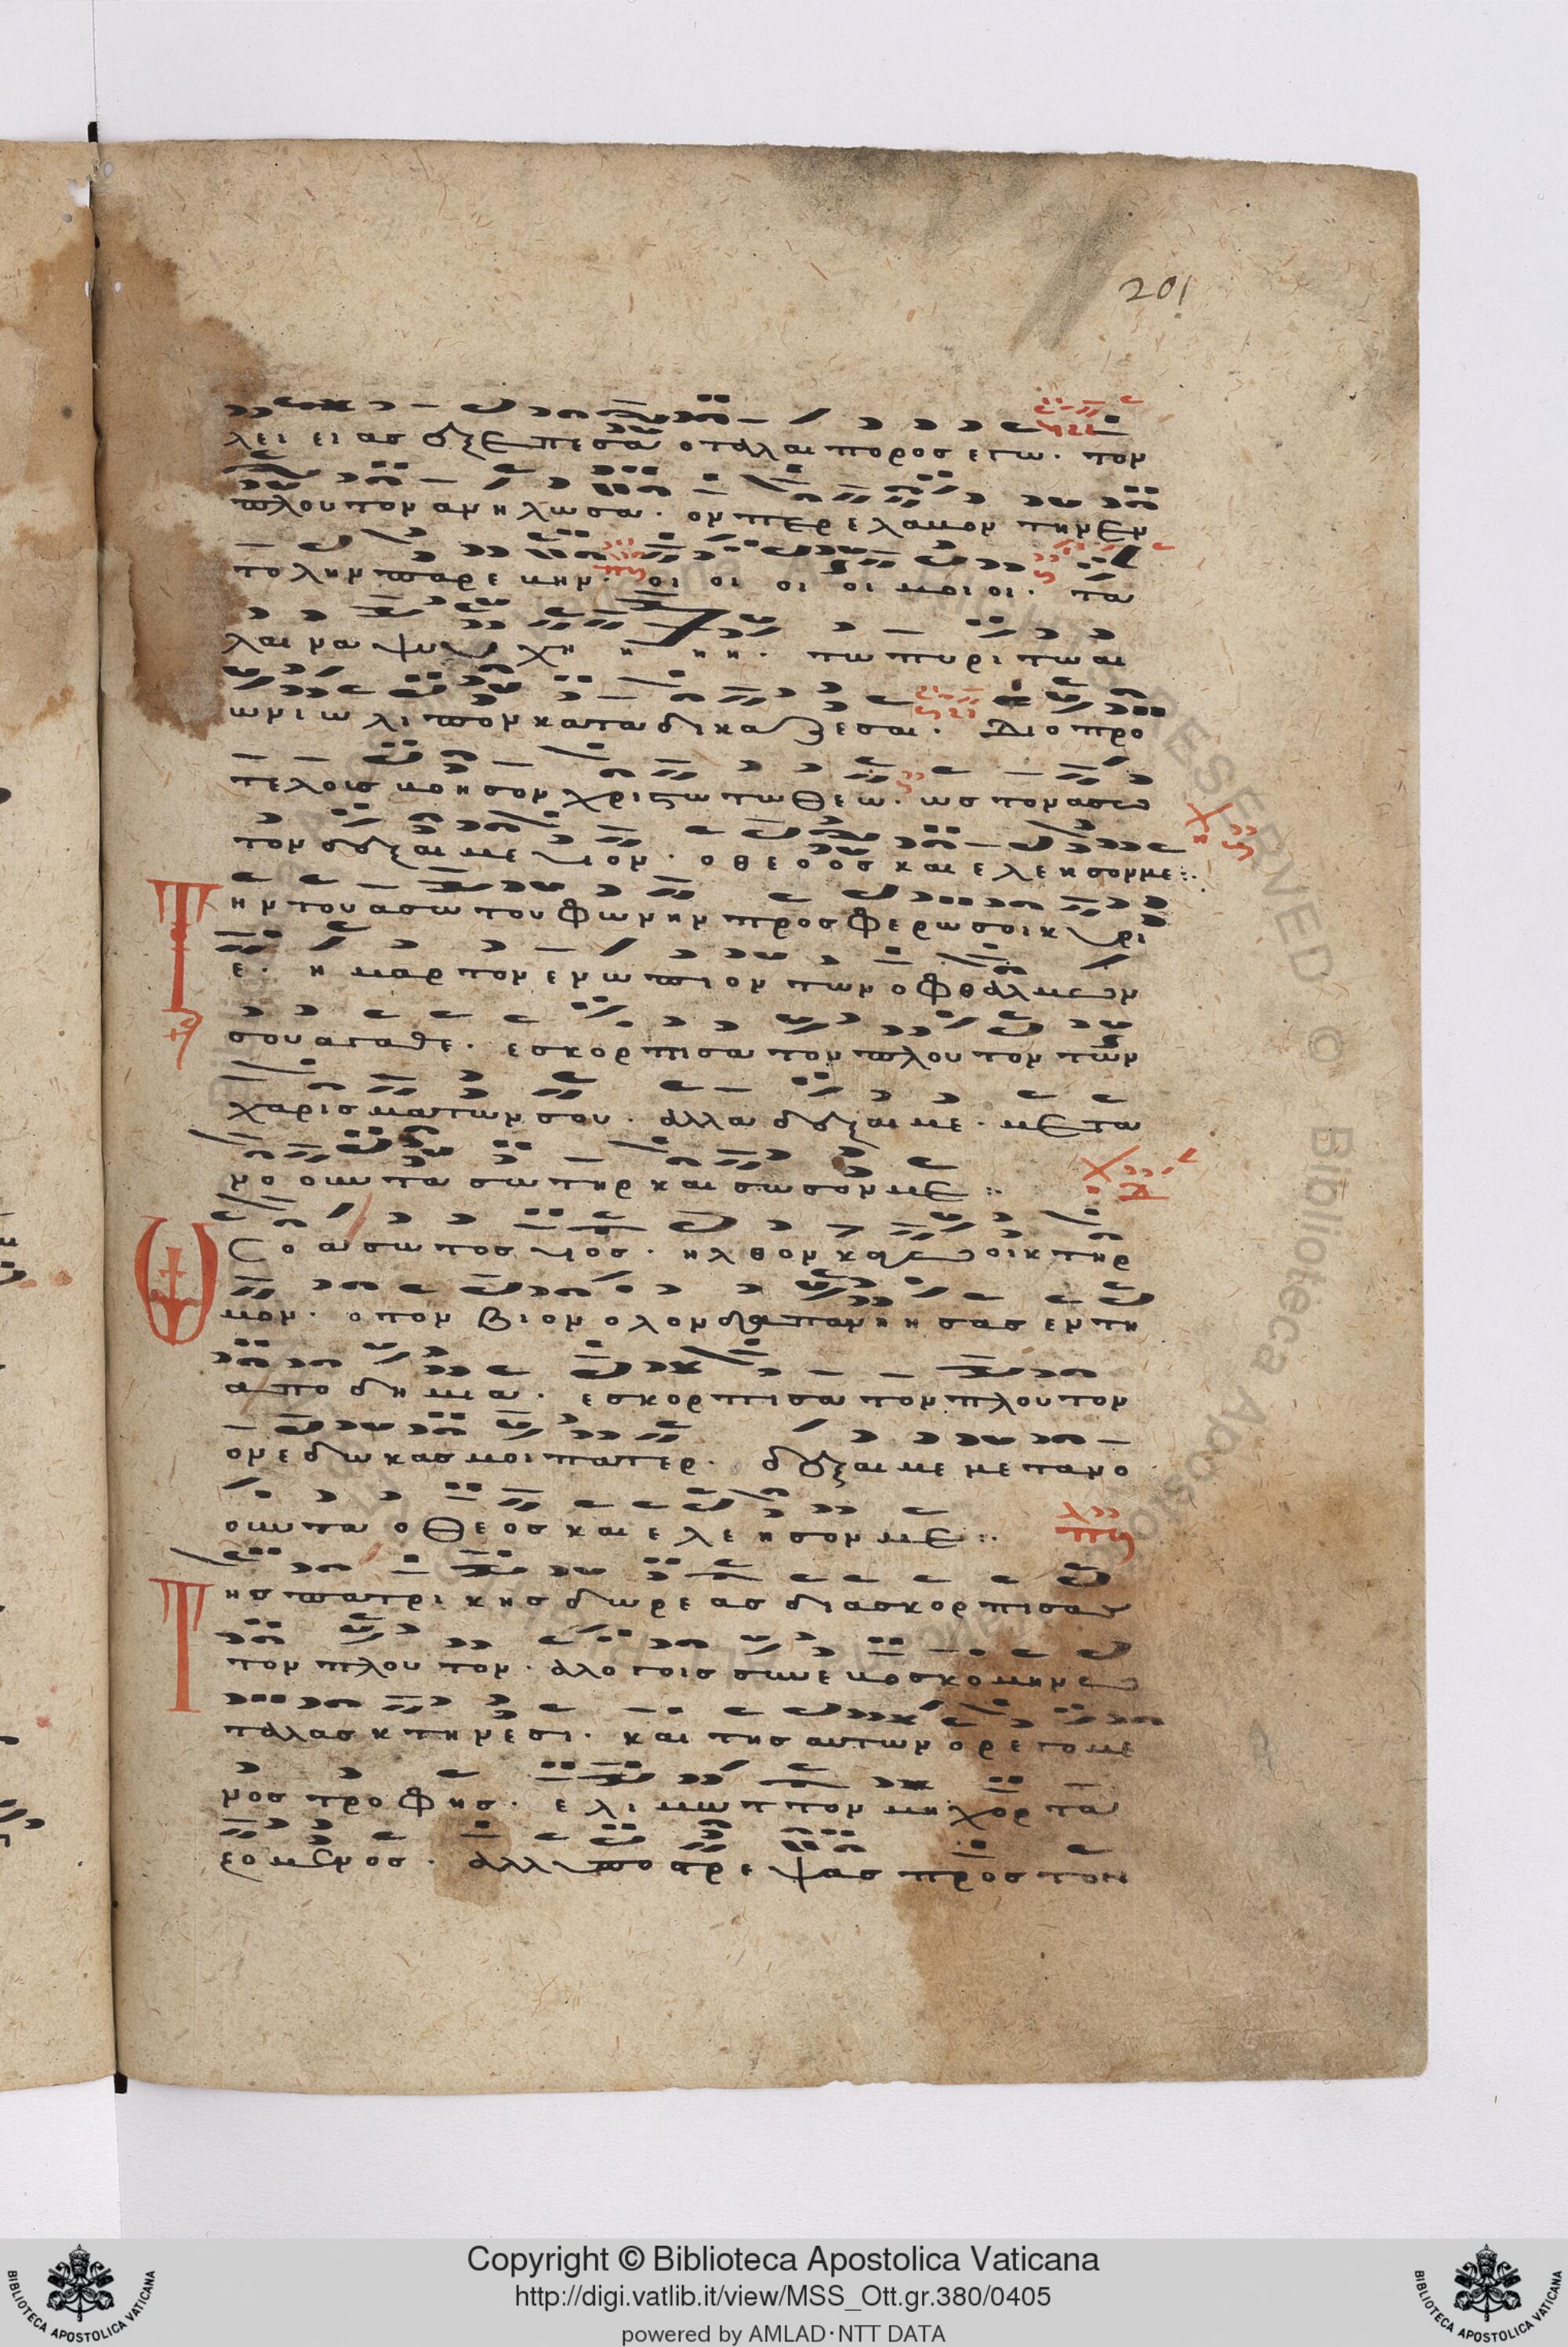 201
λει ει ασ εξεπεσα ο ταλαι πορος εγω · τον
πλουτον αναλωσα · ονπερ ελαβον την εν
τολην παρεβην · οι οι οι οι μοι οι · τα
λαι να ψυ χη η η η · τω πυρι τω αι
ωνι ω λιπον καταδικαζεσαι · Διο προ
τελουσ βοησον χριστω τω θεω · ωσ τον ασω
τον δεξαι με υιον · ο θεοοσ και ελεησον με :·
Την του ασωτου φωνην προσφερω σοι κυρι
ε · ημαρτον ενωπιον των οφθαλμων
σου αγαθε · εσκορπισα τον πλουτον των
χαρισματων σου · αλλα δεξαι με · μετα
νοουντα σωτηρ και σωσον με :·
Ωσ ο ασωτοσ υιοσ · ηλθον καγω οικτιρ
μον · ο τον βιον ολον δαπανηησασ εν τη
αποδημια · εσκορπισα τον πλουτον
ον εδωκασ μοι πατερ · δεξαι με μετανο
ουντα ο θεοσ και ελεησον με :·
Τησ πατρικησ δωρεασ διασκορπισασ
τον πλουτον · αλογοισ συνεβοσκομην ο
ταλασ κτηνεσι · και τησ αυτων ορεγομε
νοσ τροφησ · ελιμωττον μη χορτα
ζομενοσ · αλλ υποστρεψασ προσ τον
Copyright © Biblioteca Apostolica Vaticana
http://digi.vatlib.it/view/MSS_Ott.gr.380/0405
powered by AMLAD·NTT DATA
BIBLIOTECA APOSTOLICA VATICANA
BIBLIOTECA APOSTOLICA VATICANA